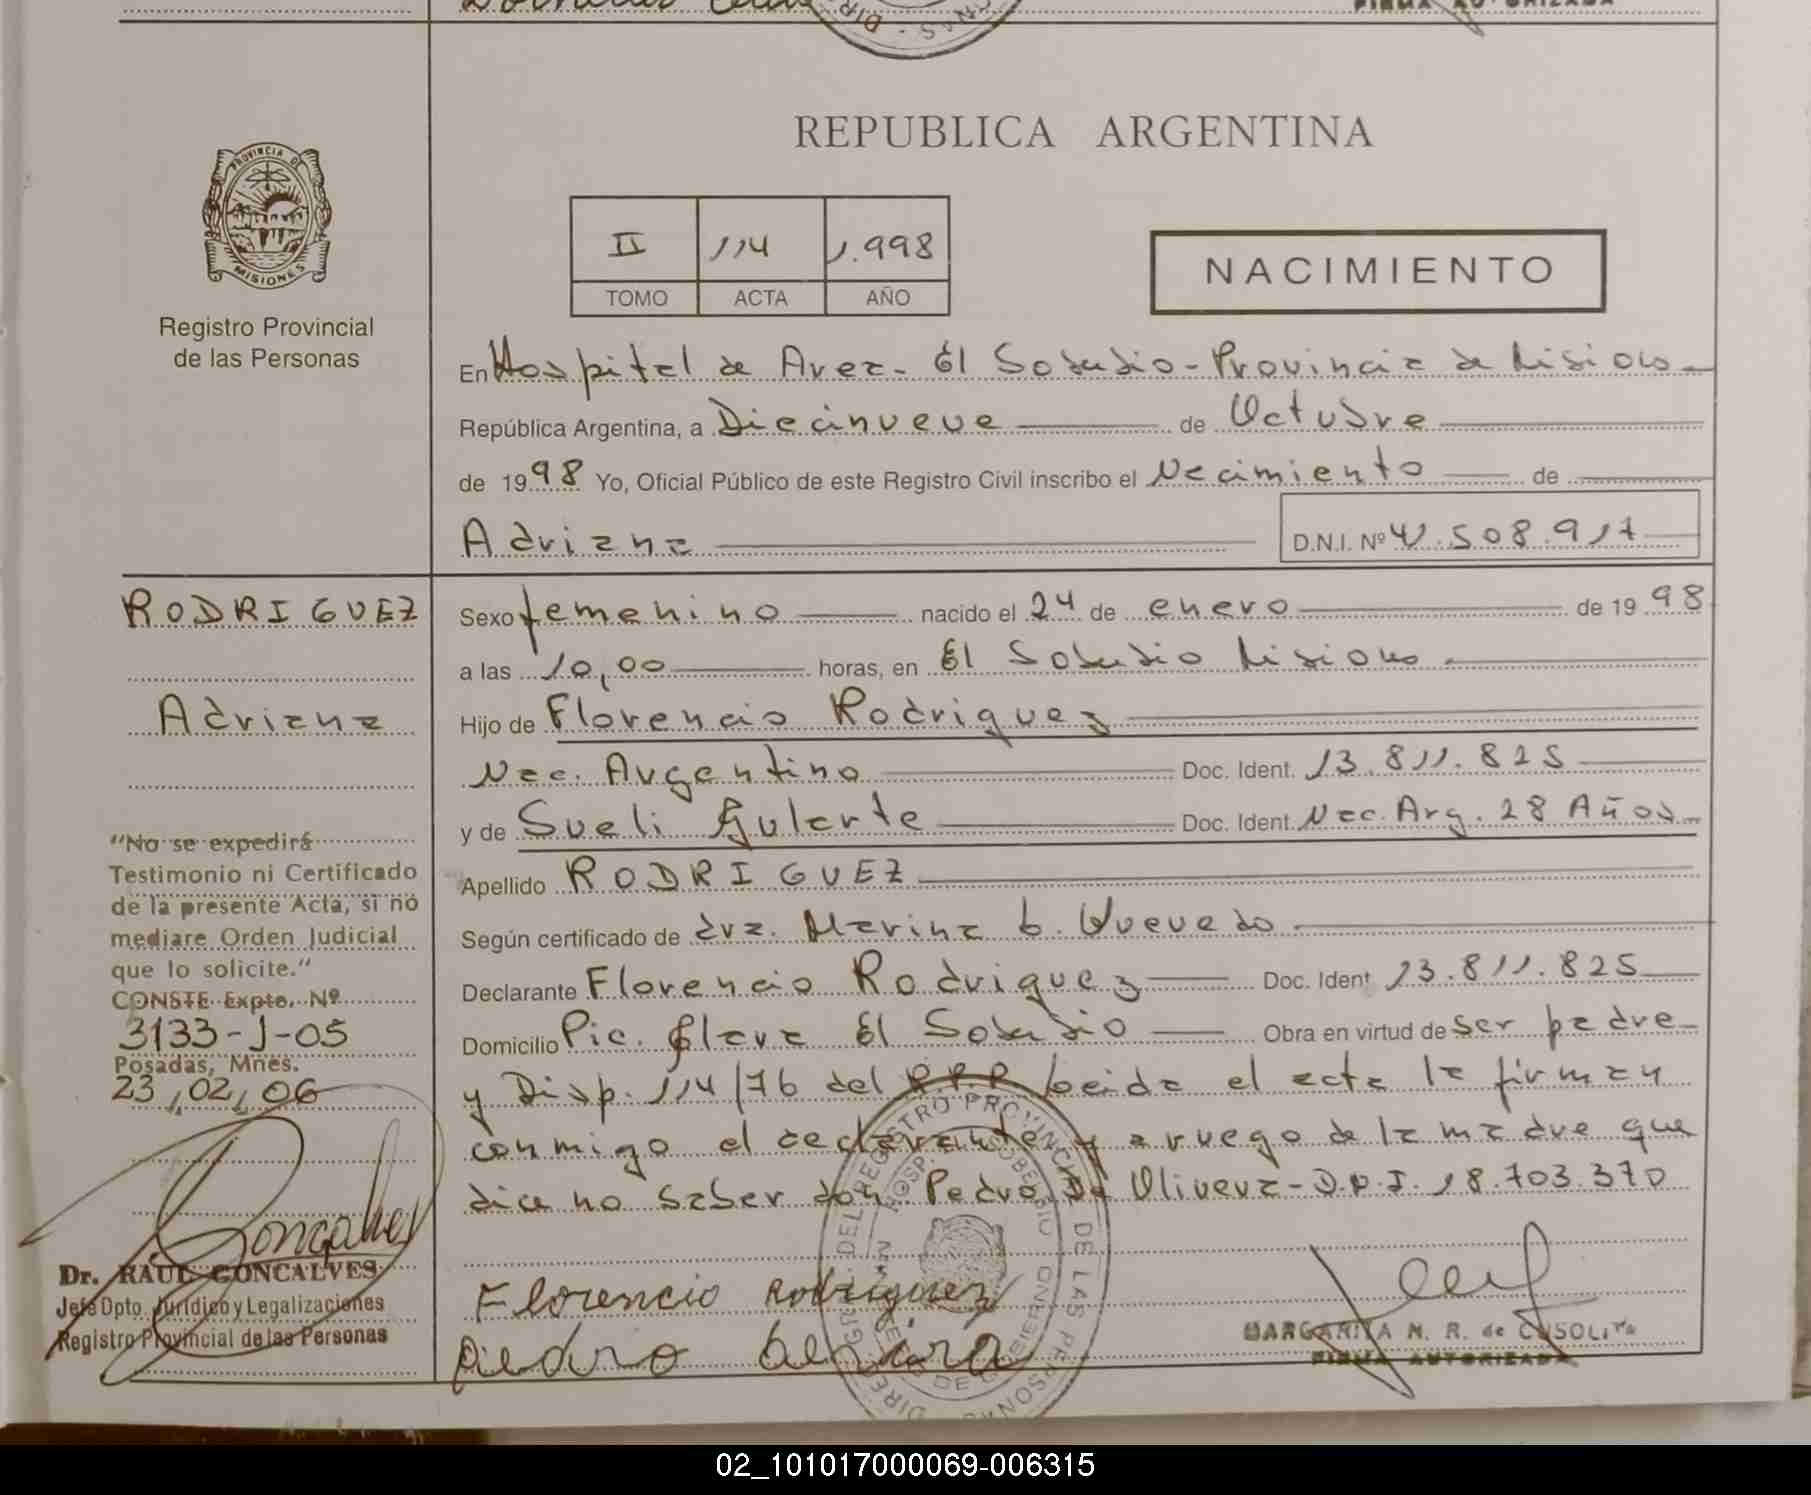 FIRMA AUTORIZADA
REPUBLICA ARGENTINA
PROVINCIA DE
MISIONES
Registro Provincial
de las Personas
II 114 1.998
TOMO ACTA AÑO
NACIMIENTO
En Hospital de Area - El Soberbio - Provincia de Misiones
República Argentina, a Diecinueve de Octubre
de 1998 Yo, Oficial Público de este Registro Civil inscribo el Nacimiento de
Adriana D.N.I. Nº 41.508.917
RODRIGUEZ
Adriana
Sexo femenino nacido el 24 de enero de 1998
a las 10,00 horas, en El Soberbio Misiones
Hijo de Florencio Rodriguez
Nac. Argentino Doc. Ident. 13.811.825
y de Sueli Gularte Doc. Ident. Nac. Arg. 28 Años
Apellido RODRIGUEZ
Según certificado de dra. Marina Quevedo
Declarante Florencio Rodriguez Doc. Ident. 13.811.825
Domicilio Pic. El Soberbio Obra en virtud de ser padre
y Disp. 114/76 del R.P.P. Leida el acta la firman
conmigo el declarante y a ruego de la madre que
dice no saber don Pedro De Olivera - D.N.I. 18.703.370
"No se expedirá
Testimonio ni Certificado
de la presente Acta, si no
mediare Orden Judicial
que lo solicite."
CONSTE Expte. Nº
3133-J-05
Posadas, Mnes.
23,02,06
Goncalves
Dr. RAUL GONCALVES
Jefe Dpto. Jurídico y Legalizaciones
Registro Provincial de las Personas
Florencio Rodriguez
MARGARITA N. R. de CUSOLITO
FIRMA AUTORIZADA
02_101017000069-006315